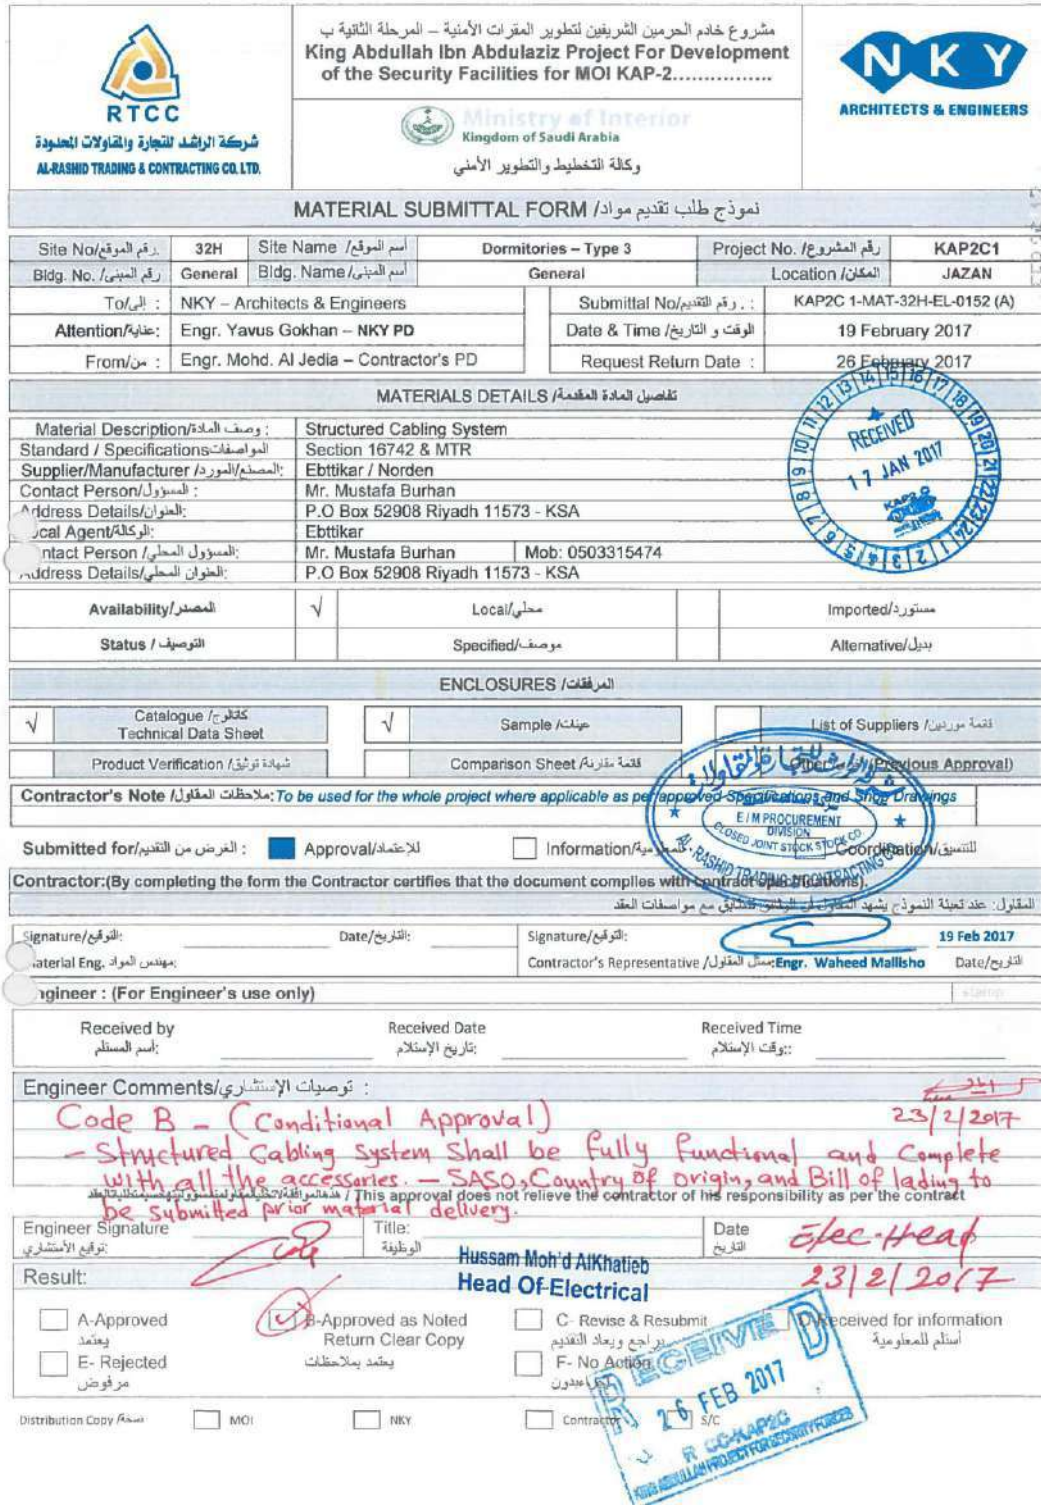 RTCC
شركة الراشد للتجارة والمقاولات المحدودة
AL-RASHID TRADING & CONTRACTING CO. LTD.
مشروع خادم الحرمين الشريفين لتطوير المقرات الأمنية – المرحلة الثانية ب
King Abdullah Ibn Abdulaziz Project For Development
of the Security Facilities for MOI KAP-2................
Ministry of Interior
Kingdom of Saudi Arabia
وكالة التخطيط والتطوير الأمني
NKY
ARCHITECTS & ENGINEERS
MATERIAL SUBMITTAL FORM /نموذج طلب تقديم مواد
Site No/رقم الموقع 32H Site Name /أسم الموقع Dormitories – Type 3 Project No. /رقم المشروع KAP2C1
Bldg. No. /رقم المبنى General Bldg. Name/أسم المبنى General Location /المكان JAZAN
To/إلى : NKY – Architects & Engineers Submittal No/رقم التقديم : KAP2C 1-MAT-32H-EL-0152 (A)
Attention/عناية: Engr. Yavus Gokhan – NKY PD Date & Time /الوقت و التاريخ 19 February 2017
From/من : Engr. Mohd. Al Jedia – Contractor's PD Request Return Date : 26 February 2017
MATERIALS DETAILS /تفاصيل المادة المقدمة
Material Description/وصف المادة : Structured Cabling System
Standard / Specifications المواصفات Section 16742 & MTR
Supplier/Manufacturer /المصنع/المورد: Ebttikar / Norden
Contact Person/المسؤول : Mr. Mustafa Burhan
Address Details/العنوان: P.O Box 52908 Riyadh 11573 - KSA
ocal Agent/الوكالة: Ebttikar
ntact Person /المسؤول المحلي: Mr. Mustafa Burhan Mob: 0503315474
Address Details/العنوان المحلي: P.O Box 52908 Riyadh 11573 - KSA
RECEIVED
17 JAN 2017
Availability/المصدر √ Local/محلي Imported/مستورد
Status / التوصيف Specified/موصف Alternative/بديل
ENCLOSURES /المرفقات
√ Catalogue /كتالوج Technical Data Sheet √ Sample /عينات List of Suppliers /قائمة موردين
Product Verification /شهادة توثيق Comparison Sheet /قائمة مقارنة (Previous Approval)
Contractor's Note /ملاحظات المقاول: To be used for the whole project where applicable as per approved Specifications and Shop Drawings
E / M PROCUREMENT
DIVISION
CLOSED JOINT STOCK CO.
AL-RASHID TRADING & CONTRACTING CO.
Submitted for/الغرض من التقديم : Approval/للإعتماد Information/ Coordination/للتنسيق
Contractor:(By completing the form the Contractor certifies that the document complies with contract specifications).
المقاول: عند تعبئة النموذج يشهد المقاول أن الوثائق تتطابق مع مواصفات العقد
Signature/التوقيع: Date/التاريخ: Signature/التوقيع: 19 Feb 2017
aterial Eng. مهندس المواد: Contractor's Representative /ممثل المقاول: Engr. Waheed Mallisho Date/التاريخ
ngineer : (For Engineer's use only)
Received by Received Date Received Time
أسم المستلم: تاريخ الإستلام: وقت الإستلام:
Engineer Comments/توصيات الإستشاري :
23/2/2017
Code B - (Conditional Approval)
- Structured Cabling System Shall be fully functional and Complete
with all the accessories. - SASO, Country of origin, and Bill of lading to
/ This approval does not relieve the contractor of his responsibility as per the contract
be submitted prior material delivery.
Engineer Signature Title: Date Elec-Head
توقيع الأستشاري: الوظيفة التاريخ
Hussam Moh'd AlKhatieb
Head Of Electrical
Result: 23/2/2017
A-Approved B-Approved as Noted C- Revise & Resubmit D-Received for information
يعتمد Return Clear Copy يراجع ويعاد التقديم أستلم للمعلومية
E- Rejected يعتمد بملاحظات F- No Action
مرفوض
RECEIVED
26 FEB 2017
KING ABDULLAH PROJECT FOR SECURITY FORCES
Distribution Copy /نسخة MOI NKY Contractor S/C